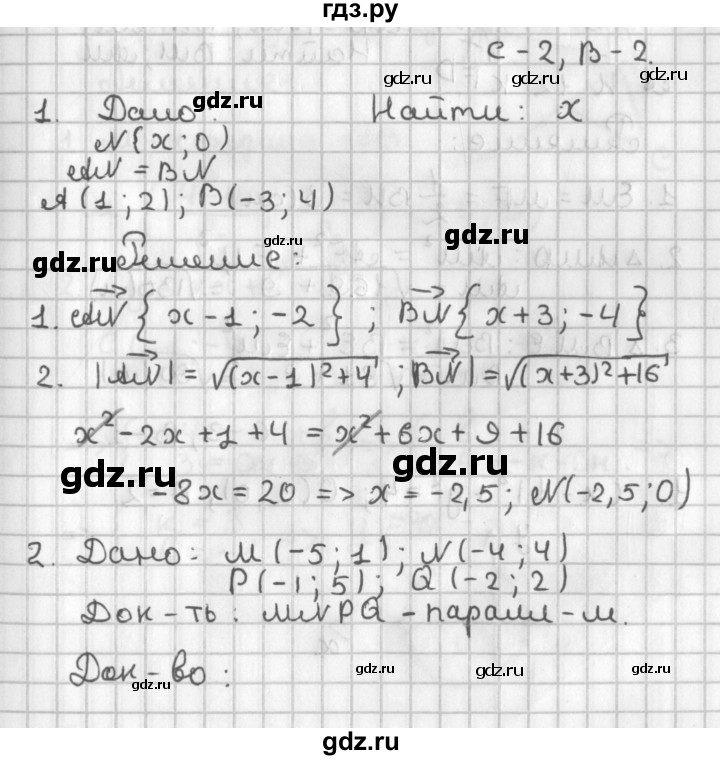 гдз.ру
С-2, В-2.
1. Дано: Найти: x
N{x;0)
AN = BN
A(1;2); B(-3;4)
Решение:
1. AN{x-1;-2}; BN{x+3;-4}
2. |AN| = √(x-1)²+4; |BN| = √(x+3)²+16
x²-2x+1+4 = x²+6x+9+16
-8x=20 => x=-2,5; N(-2,5;0)
2. Дано: M(-5;1); N(-4;4)
P(-1;5); Q(-2;2)
Док-ть: MNPQ - паралл-м.
Док-во:
gdz.ru
gdz.ru
gdz.ru
gdz.ru
gdz.ru
gdz.ru
gdz.ru
gdz.ru
gdz.ru
gdz.ru
gdz.ru
gdz.ru
gdz.ru
gdz.ru